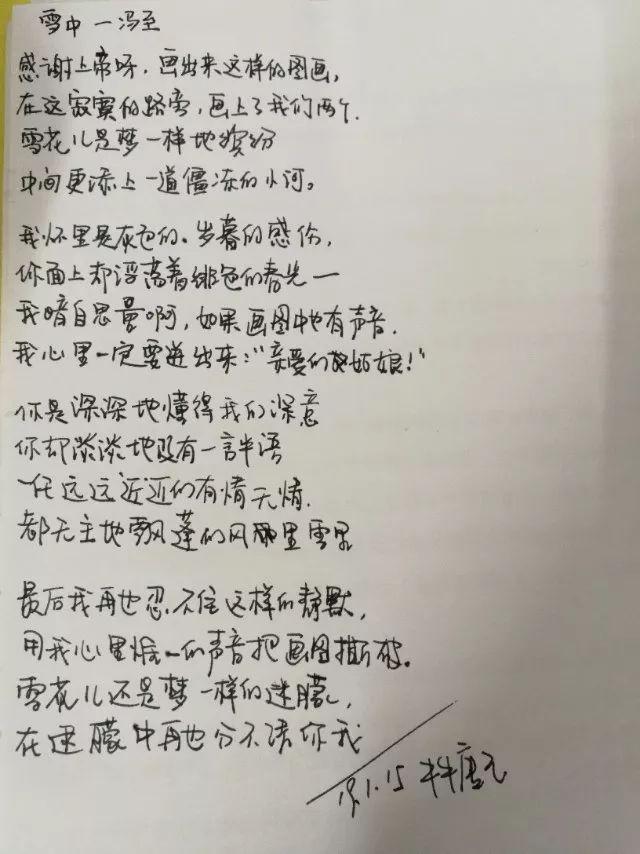 雪中 一 冯至
感谢上帝呀，画出来这样的图画，
在这寂寞的路旁，画上了我们两个．
雪花儿是梦一样地缤纷
中间更添上一道僵冻的小河。
我怀里是灰色的。岁暮的感伤，
你面上却浮荡着绯色的春光一
我暗自思量啊，如果画图中也有声音．
我心里一定要迸出来："亲爱的姑娘！"
你是深深地懂得我的深意
你却淡淡地没有一言半语
一任远远近近的有情无情．
都无主地飘蓬的风里雪里
最后我再也忍不住这样的静默，
用我心里惟一的声音把画图撕破。
雪花儿还是梦一样的迷朦，
在迷朦中再也分不清你我
19.1.15